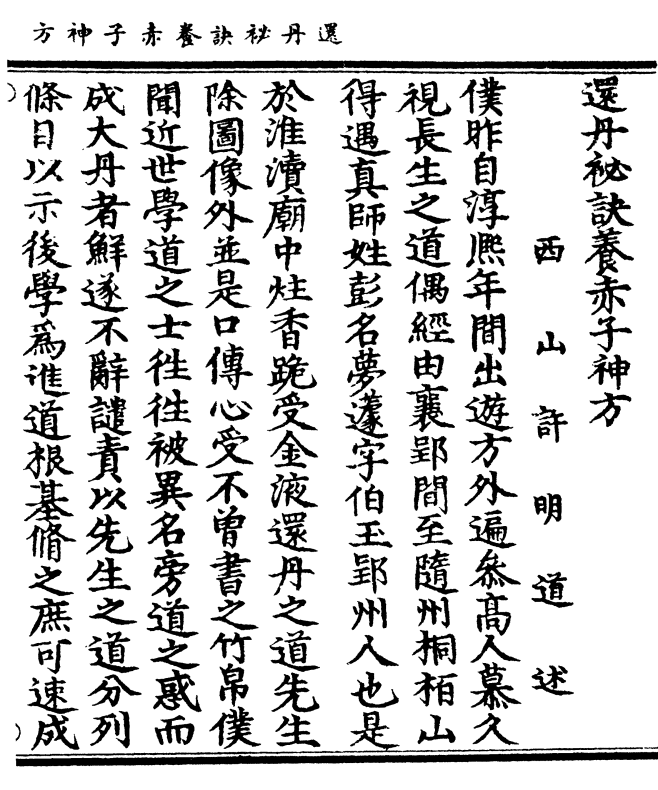 還丹祕訣養赤子神方
還丹祕訣養赤子神方
西山許明道述
僕昨自淳熈年間出遊方外遍叅高人慕久
視長生之道偶經由襄郢間至隨州桐栢山
得遇真師姓彭名夢蘧字伯玉郢州人也是
於淮瀆廟中炷香跪受金液還丹之道先生
除圖像外並是口傳心受不曾書之竹帛僕
聞近世學道之士徃徃被異名旁道之惑而
成大丹者鮮遂不辭譴責以先生之道分列
條目以示後學爲進道根基脩之庶可速成